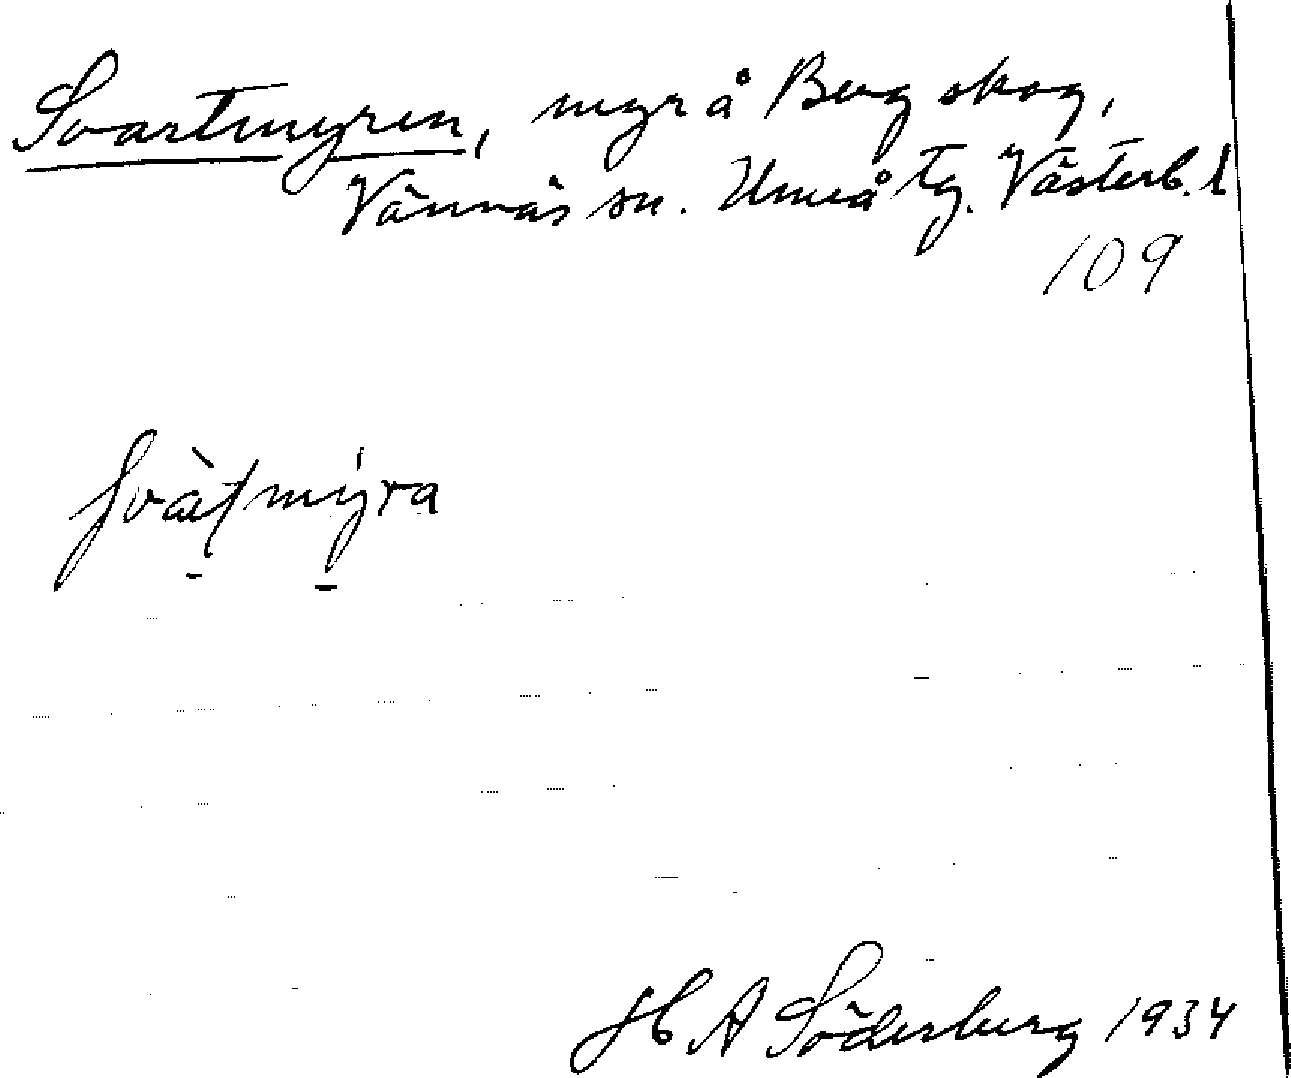 Svartmyren, myr å Berg skog,
Vännäs sn. Umeå tg. Västerb. l
109
svàtmýra
H A Söderberg 1934